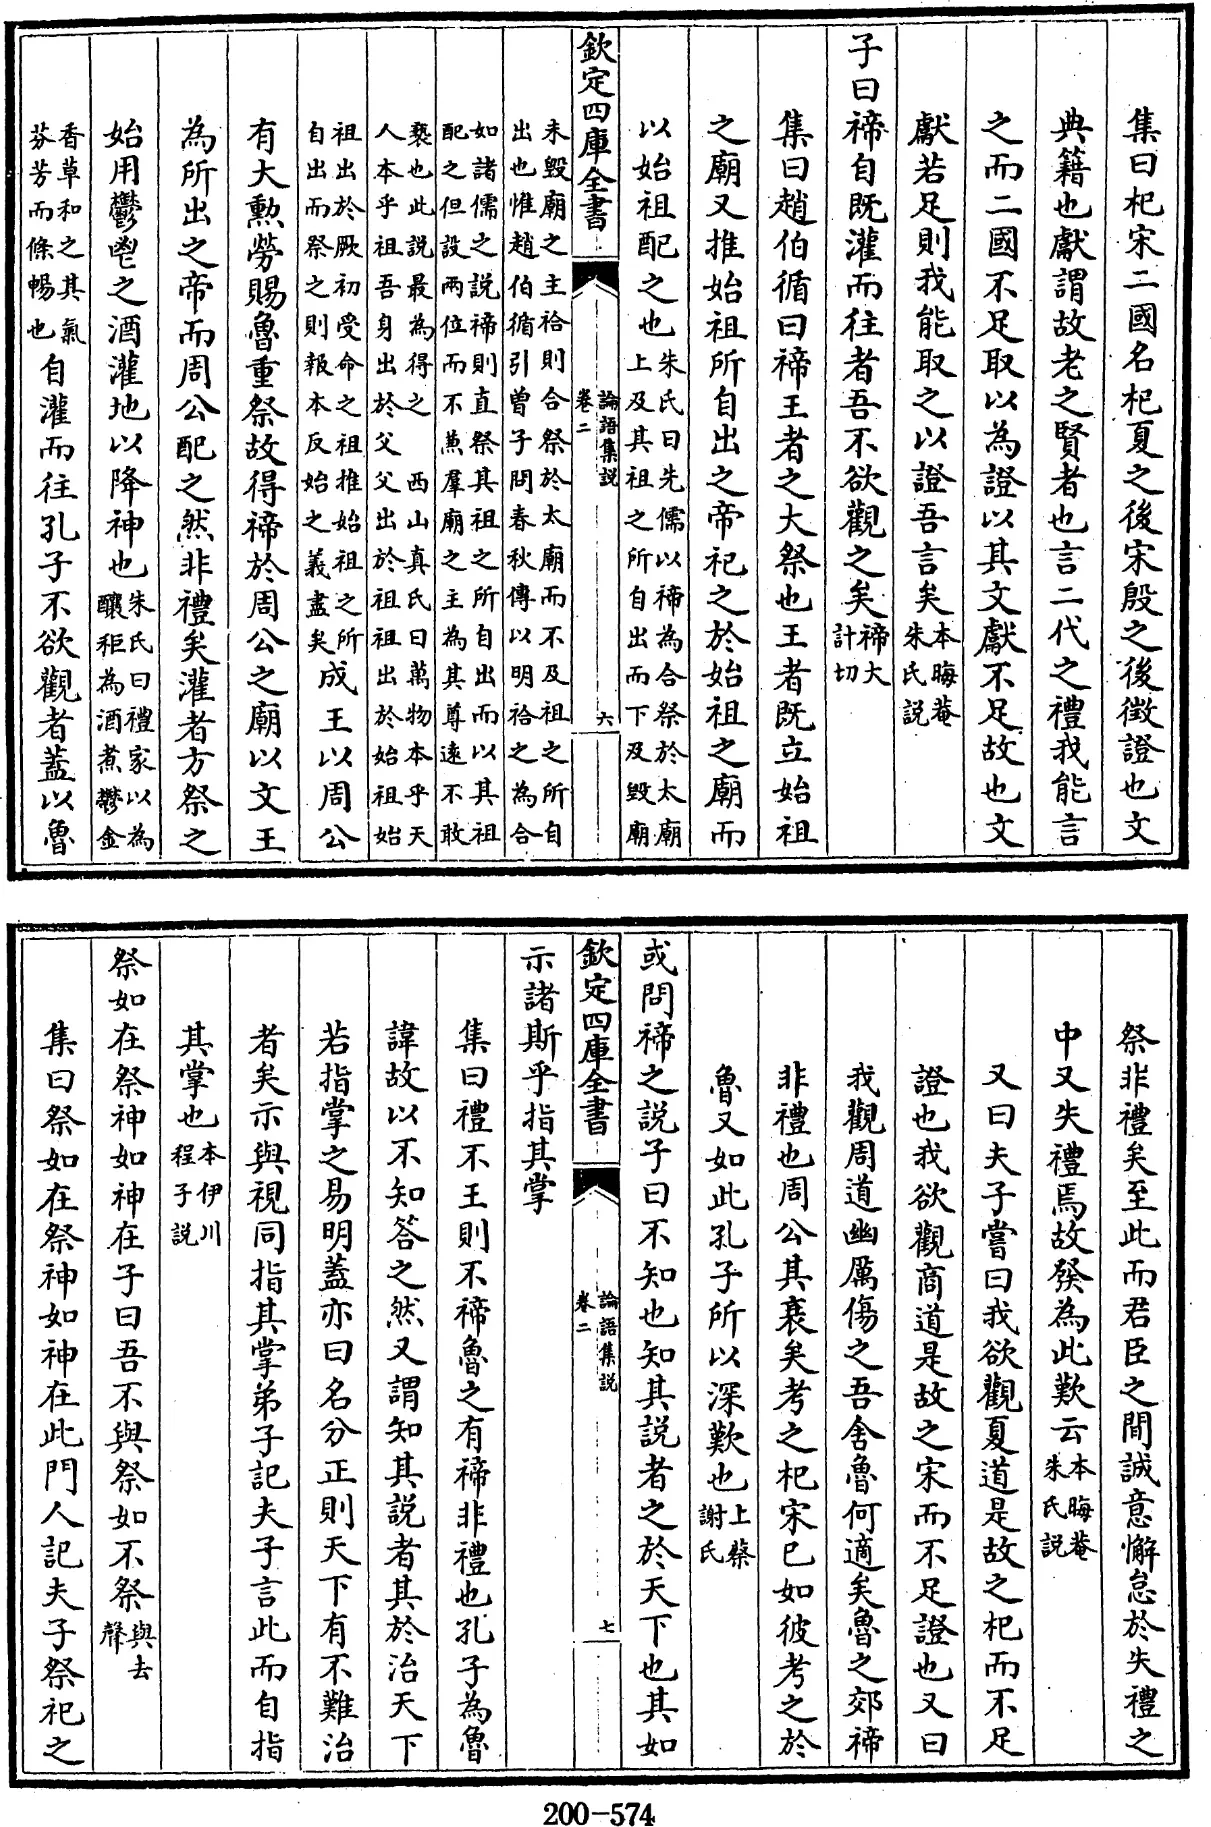 集曰杞宋二國名杞夏之後宋殷之後徴證也文
典籍也獻謂故老之賢者也言二代之禮我能言
之而二國不足取以為證以其文獻不足故也文
獻若足則我能取之以證吾言矣本晦菴朱氏説
子曰禘自既灌而往者吾不欲觀之矣禘大計切
集曰趙伯循曰禘王者之大祭也王者既立始祖
之廟又推始祖所自出之帝祀之於始祖之廟而
以始祖配之也朱氏曰先儒以禘為合祭於太廟上及其祖之所自出而下及毀廟
欽定四庫全書 論語集説卷二 六
未毀廟之主祫則合祭於太廟而不及祖之所自出也惟趙伯循引曽子問春秋傳以明祫之為合
如諸儒之説禘則直祭其祖之所自出而以其祖配之但設兩位而不兼羣廟之主為其尊遠不敢
褻也此説最為得之 西山真氏曰萬物本乎天人本乎祖吾身出於父父出於祖祖出於始祖始
祖出於厥初受命之祖推始祖之所自出而祭之則報本反始之義盡矣成王以周公
有大勲勞賜魯重祭故得禘於周公之廟以文王
為所出之帝而周公配之然非禮矣灌者方祭之
始用鬱鬯之酒灌地以降神也朱氏曰禮家以為釀秬為酒煮鬱金
香草和之其氣芬芳而條暢也自灌而往孔子不欲觀者蓋以魯
祭非禮矣至此而君臣之間誠意懈怠於失禮之
中又失禮焉故發為此歎云本晦菴朱氏説
又曰夫子嘗曰我欲觀夏道是故之杞而不足
證也我欲觀商道是故之宋而不足證也又曰
我觀周道幽厲傷之吾舍魯何適矣魯之郊禘
非禮也周公其衰矣考之杞宋已如彼考之於
魯又如此孔子所以深歎也上蔡謝氏
或問禘之説子曰不知也知其説者之於天下也其如
欽定四庫全書 論語集説卷二 七
示諸斯乎指其掌
集曰禮不王則不禘魯之有禘非禮也孔子為魯
諱故以不知答之然又謂知其説者其於治天下
若指掌之易明蓋亦曰名分正則天下有不難治
者矣示與視同指其掌弟子記夫子言此而自指
其掌也本伊川程子説
祭如在祭神如神在子曰吾不與祭如不祭與去聲
集曰祭如在祭神如神在此門人記夫子祭祀之
200-574